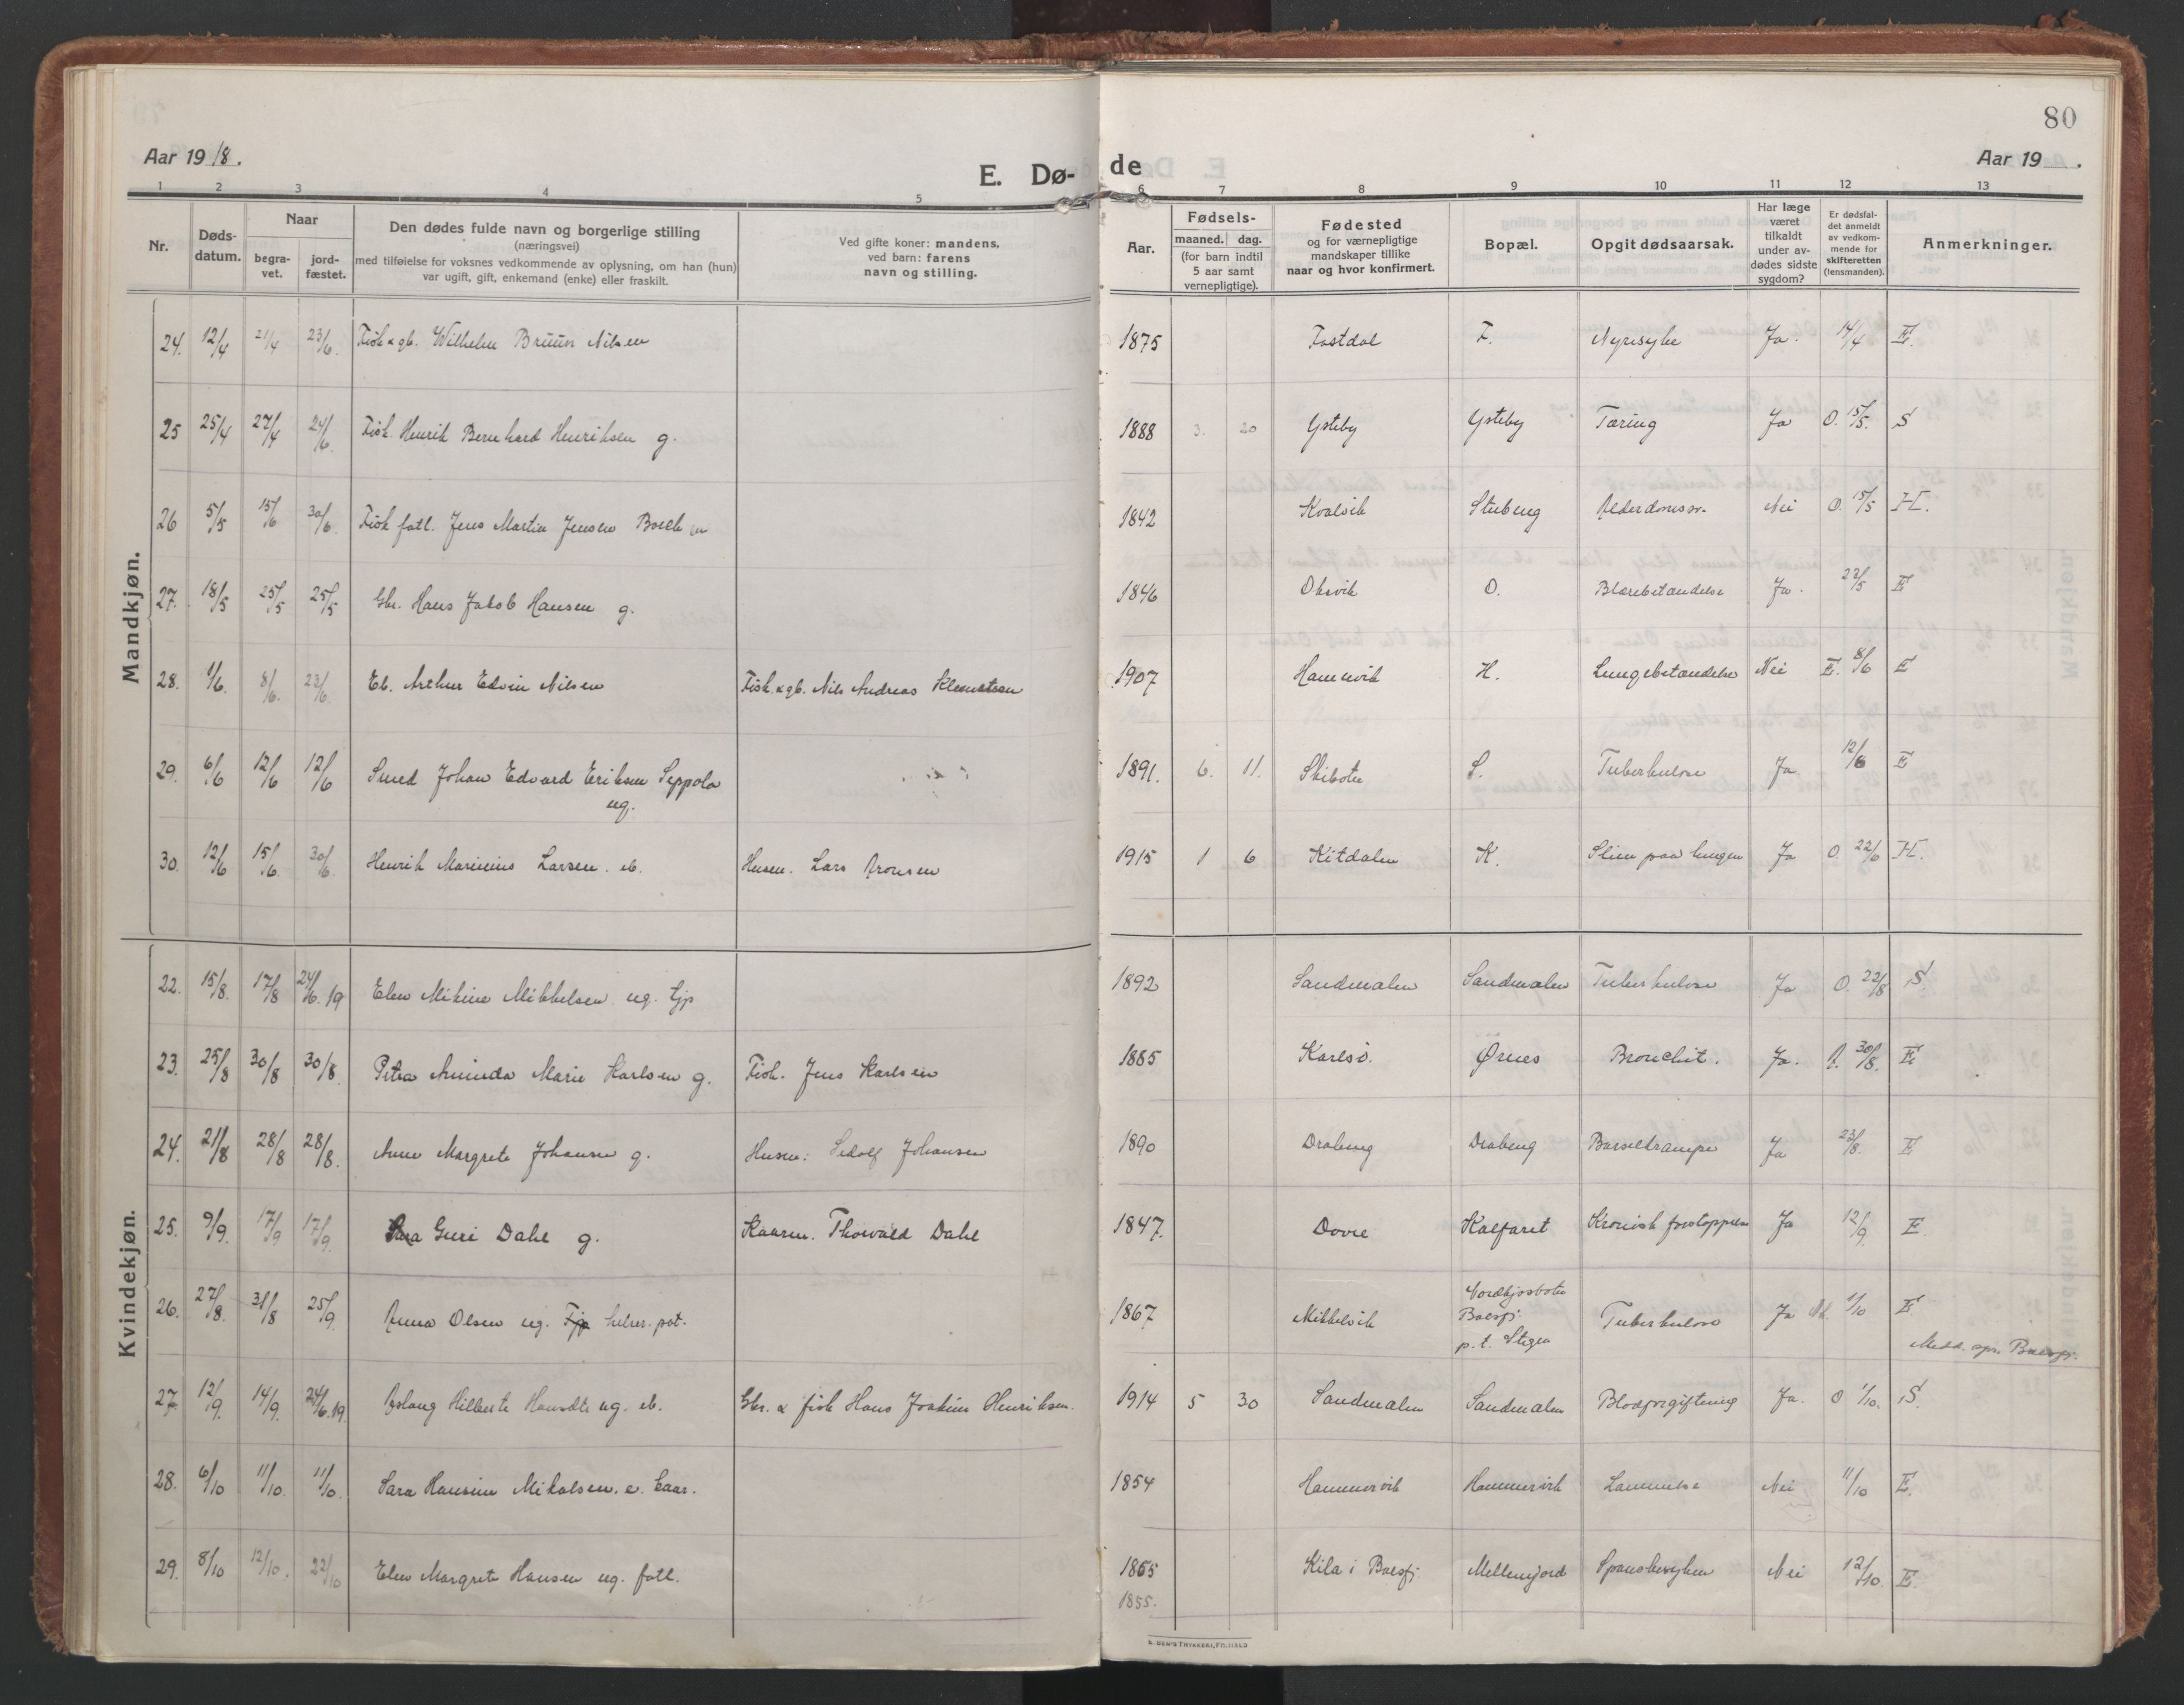 80
Aar 1918.
E. Dø-
de
Aar 19   .
1 2 3 4 5 6 7 8 9 10 11 12 13
Nr.
Døds-
datum.
Naar
begra-
vet.
jord-
fæstet.
Den dødes fulde navn og borgerlige stilling
(næringsvei)
med tilføielse for voksnes vedkommende av oplysning, om han (hun)
var ugift, gift, enkemand (enke) eller fraskilt.
Ved gifte koner: mandens,
ved barn: farens
navn og stilling.
Aar.
Fødsels-
maaned. dag.
(for barn indtil
5 aar samt
vernepligtige).
Fødested
og for værnepligtige
mandskaper tillike
naar og hvor konfirmert.
Bopæl.
Opgit dødsaarsak.
Har læge
været
tilkaldt
under av-
dødes sidste
sygdom?
Er dødsfal-
det anmeldt
av vedkom-
mende for
skifteretten
(lensmanden).
Anmerkninger.
Mandkjøn.
24. 12/4 21/4 23/6. Fisk & gb. Wilhelm Bruun Nilsen 1875 Fastdal F. Nyresyke Ja. 14/4 E.
25 25/4 27/4 24/6. Fisk. Henrik Bernhard Henriksen g. 1888 3. 20 Ysteby Ysteby Tæring Ja O. 15/5. S
26 5/5 15/6 30/6. Fisk fatl. Jens Martin Jensen 1842 Kvalvik Stubeng Alderdomssv. Nei O. 15/5 H.
27. 18/5 25/5 25/5 Gbr. Hans Jakob Hansen g. 1846 Oksvik O. Blærebetændelse Ja. 22/5 E
28. 1/6. 8/6. 23/6. Eb. Arthur Edvin Nilsen Fisk. & gb. Nils Andreas Klemetsen 1907 Hamnvik H. Lungebetændelse Nei E. 8/6 E
29. 6/6 12/6 12/6 Smed Johan Edvard Eriksen Seppola
ug.
1891. 6. 11. Skibotn S. Tuberkulose Ja 12/6 E
30. 12/6 15/6. 30/6. Henrik Marinius Larsen. eb. Husm. Lars Aronsen 1915 1 6 Kitdalen K. Slim paa lungen Ja O 22/6 H.
Kvindekjøn.
22. 15/8. 17/8 24/6. 19 Elen Mikine Mikkelsen ug. tjp 1892 Sandmælen Sandmælen Tuberkulose Ja O. 22/8 S.
23. 25/8 30/8 30/8. Petra Aminda Marie Karlsen g. Fisk. Jens Karlsen 1885 Karlsö. Ørnes Bronchit. Ja. 30/8. E
24. 21/8 28/8 28/8. Anne Margrete Johansen g. Husm: Sedolf Johansen 1890 Drabeng Drabeng Barselkrampe Ja 23/8. E
25. 9/9. 17/9 17/9. Guri Dahl g. Kaarm. Thorvald Dahl 1847. Dovre Kalfaret Kronisk forstoppelse Ja 12/9. E
26. 27/8. 31/8 25/9. Anna Olsen ug. pat. 1867 Mikkelvik Nordkjosbotn
Balsfj.
p. t. Stigen
Tuberkulose Ja 1/10 E
Medd. spr. Balsfj.
27. 12/9. 14/9. 24/6. 19. Aslaug Hilberte Hansdtr ug. eb. Gbr. & fisk Hans Joakim Henriksen. 1914 5 30 Sandmælen Sandmælen Blodforgiftning Ja. O 1/10. S.
28. 6/10 11/10. 11/10. Sara Hansine Mikalsen. e. kaar. 1854 Hammervik Hammervik Lammelse Nei 11/10 E.
29. 8/10 12/10. 22/10 Elen Margrete Hansen ug. fatl. 1865 Kila i Balsfj. Mellemjord Spanskesyken Nei 12/10. E.
1855.